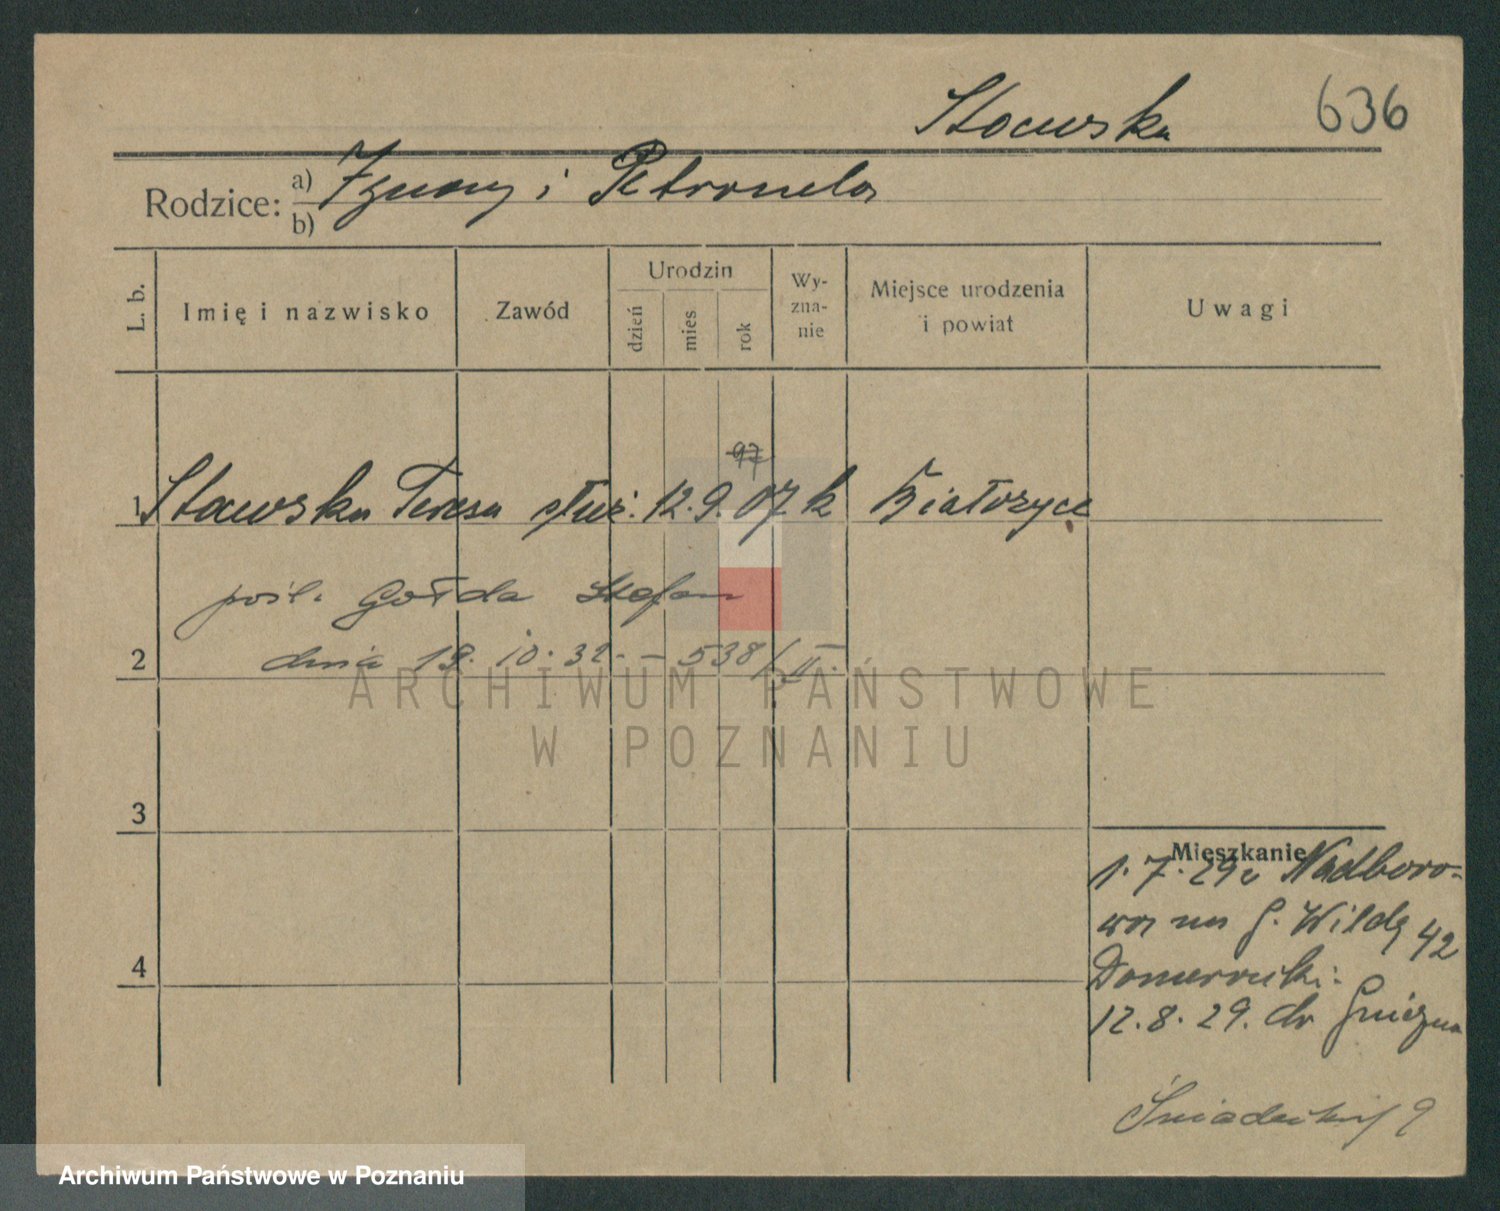 Stawska 636
Rodzice: a) Ignacy i Petronela
b)
L. b.
Imię i nazwisko
Zawód
Urodzin
dzień
mies
rok
Wy-
zna-
nie
Miejsce urodzenia
i powiat
Uwagi
97
1 Stawska Teresa służ. 12. 9. 07 k Białożyce
pośl. Gołda Stefan
2 dnia 19. 10. 32. - 538/II.
ARCHIWUM PAŃSTWOWE
W POZNANIU
3
Mieszkanie
1. 7. 29 z Nadboro-
wa na G. Wildę 42
4
12. 8. 29. do Gniezna
Śniadeckich 9
Archiwum Państwowe w Poznaniu